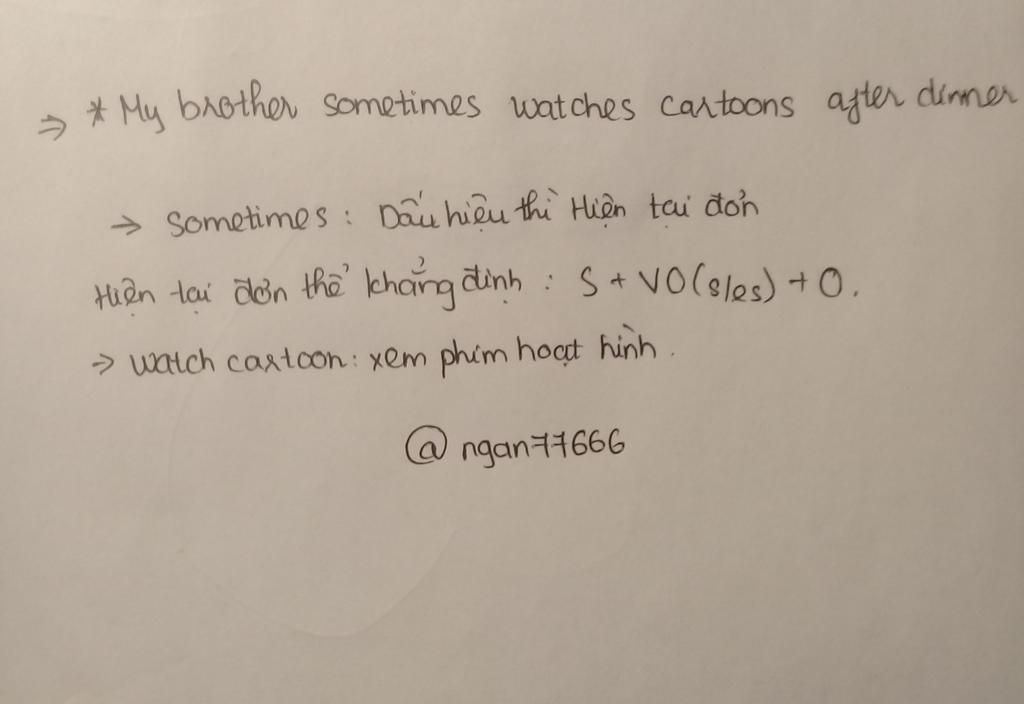 ⇒ * My brother sometimes watches cartoons after dinner
→ Sometimes : Dấu hiệu thì Hiện tại đơn
Hiện tại đơn thể khẳng định : S + VO(s/es) + O.
→ Watch cartoon : xem phim hoạt hình .
@ ngan77666